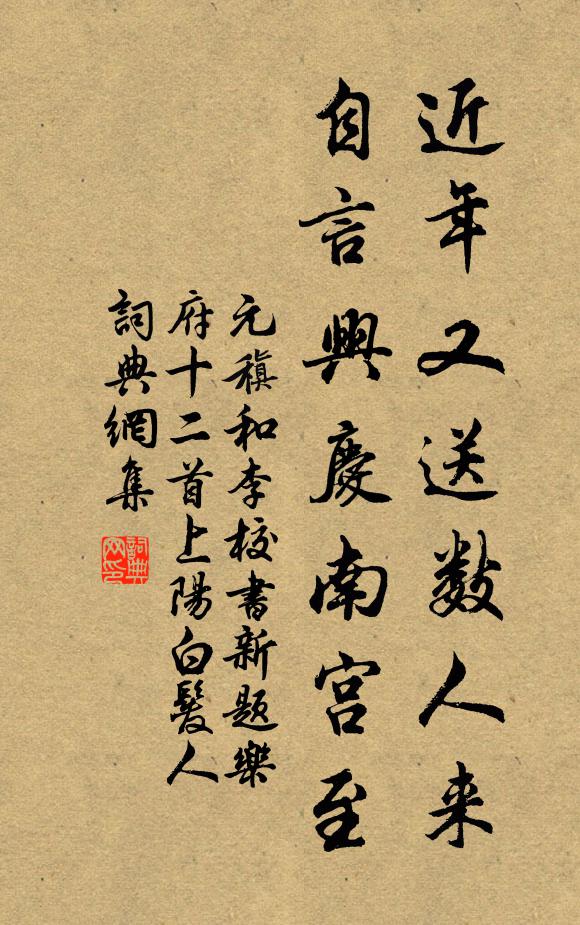 近年又送数人来
自言興慶南宮至
元稹和李校書新題樂
府十二首上陽白髮人
詞典網集
詞典
网印